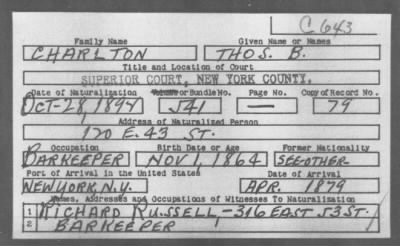 C 643
Family Name Given Name or Names
CHARLTON THOS. B.
Title and Location of Court
SUPERIOR COURT, NEW YORK COUNTY.
Date of Naturalization Volume or Bundle No. Page No. Copy of Record No.
OCT-28, 1894 541 — 79
Address of Naturalized Person
120 E. 43 ST.
Occupation Birth Date or Age Former Nationality
BARKEEPER NOV 1, 1864 SEE OTHER
Port of Arrival in the United States Date of Arrival
NEW YORK, N.Y. APR. 1879
Names, Addresses and Occupations of Witnesses To Naturalization
1 RICHARD RUSSELL, - 316 EAST 53 ST.
2 BARKEEPER